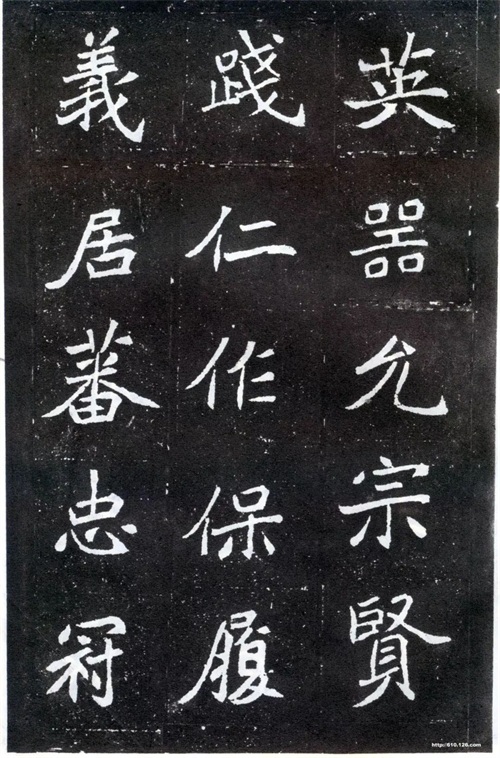 英噐允宗賢
踐仁作保履
義居蕃忠冠
http://610.126.com